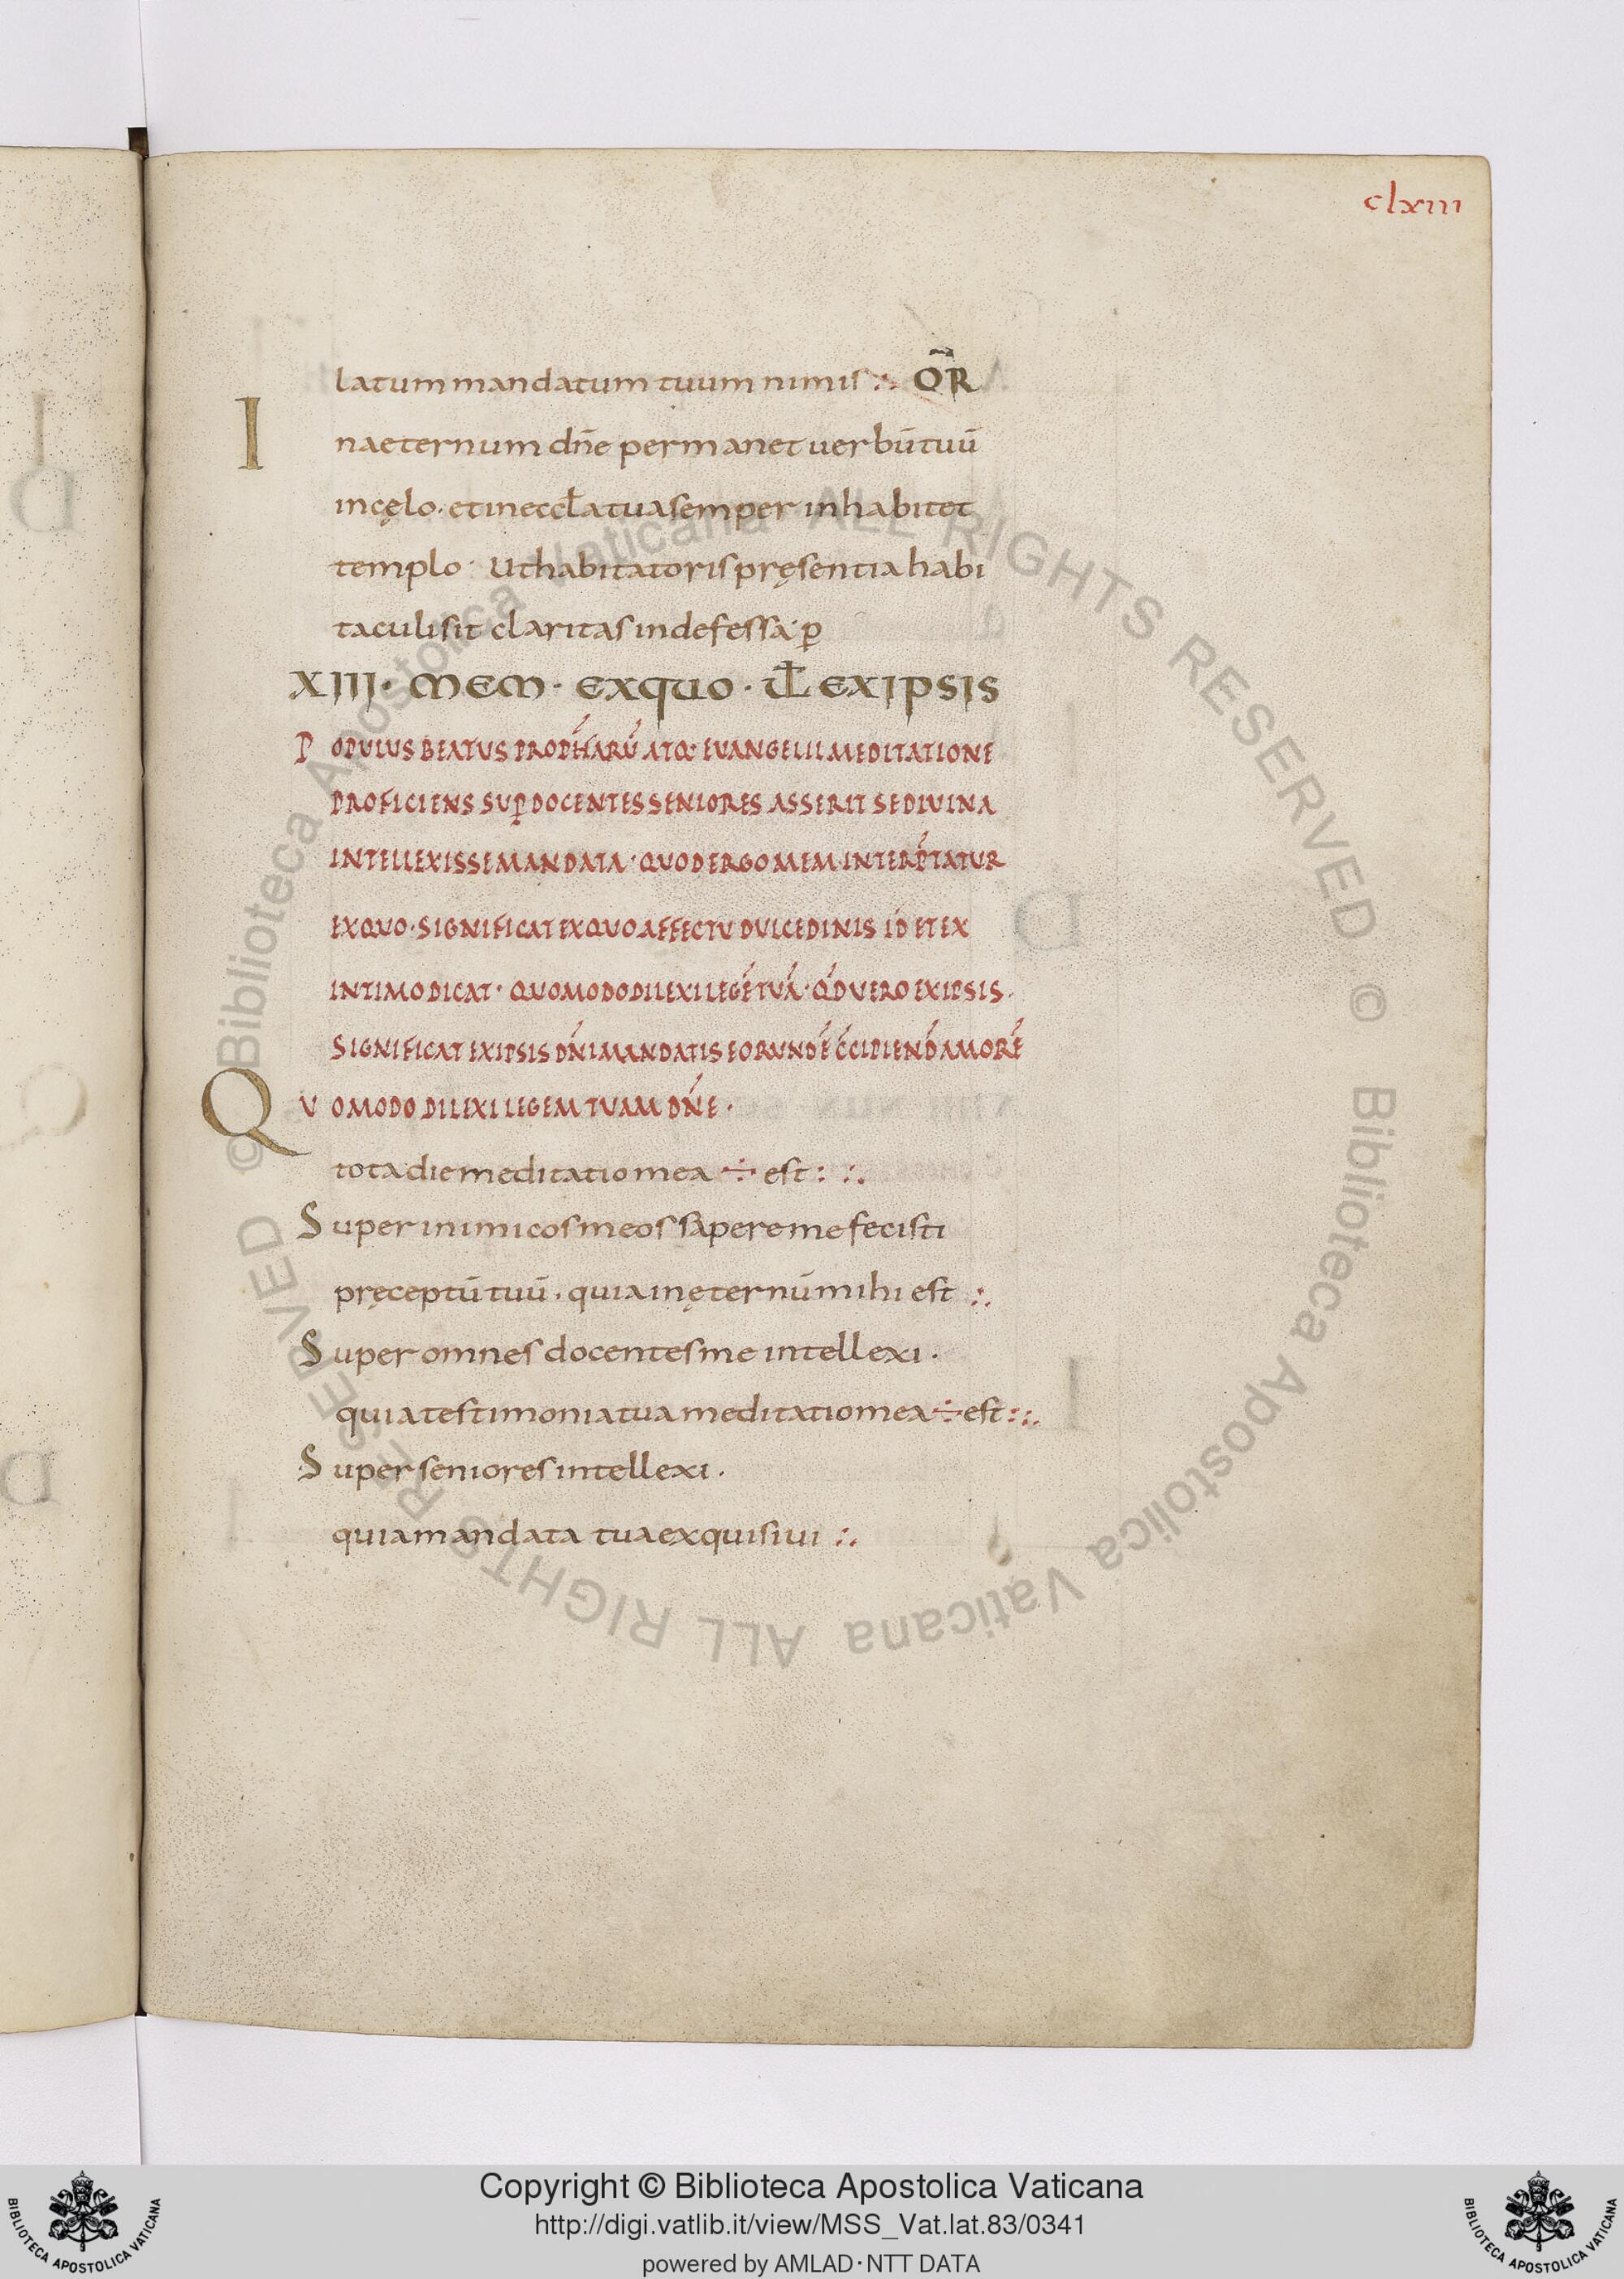 clxiii
latum mandatum tuum nimis :. OR̃
In aeternum dn̄e permanet uerbū tuū
in cęlo · et in eccła tua semper inhabitet
templo · Ut habitatoris pręsentia habi
taculi sit claritas indefessa · ꝑ
XIII · MEM · EXQUO · UƗ EXIPSIS
POPULUS BEATUS PROPHARŪ ATQ· EUANGELII MEDITATIONE
PROFICIENS SUꝐ DOCENTES SENIORES ASSERIT SE DIUINA
INTELLEXISSE MANDATA · QUOD ERGO MEM INTERP̄TATUR
EXQUO · SIGNIFICAT EXQUO AFFECTU DULCEDINIS ID ET EX
INTIMO DICAT · QUOMODO DILEXI LEGĒ TUĀ · Q̄D UERO EXIPSIS ·
SIGNIFICAT EXIPSIS DN̄I MANDATIS EORUNDĒ C̄CIPIEND̄ AMORĒ
QUOMODO DILEXI LEGEM TUAM DN̄E ·
tota die meditatio mea ÷ est : :.
Super inimicos meos sapere me fecisti
pręceptū tuū · quia in ęternū mihi est :.
Super omnes docentes me intellexi ·
quia testimonia tua meditatio mea ÷ est : :.
Super seniores intellexi ·
quia mandata tua exquisiui :.
© Biblioteca Apostolica Vaticana ALL RIGHTS RESERVED © Biblioteca Apostolica Vaticana ALL RIGHTS RESERVED
Copyright © Biblioteca Apostolica Vaticana
http://digi.vatlib.it/view/MSS_Vat.lat.83/0341
powered by AMLAD · NTT DATA
BIBLIOTECA APOSTOLICA VATICANA
BIBLIOTECA APOSTOLICA VATICANA